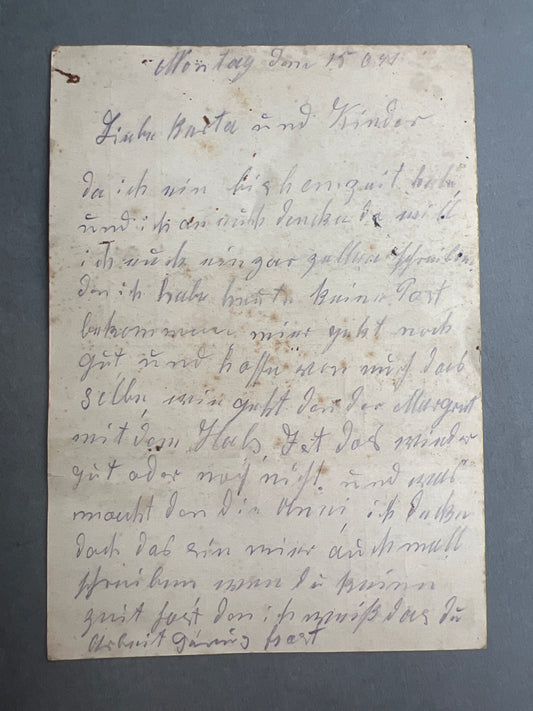 Montag den 15 6 41
Liebe Berta und Kinder
da ich ein bischen zeit habe
und ich an euch dencke da will
ich euch ein par zeillen schreiben
den ich habe heute keine Post
bekommen mier geht noch
gut und hoffe von euch das
selbe, wie geht den der Margret
mit dem Hals, Ist das wieder
gut oder noch nicht, und was
macht den die Anni ich dencke
doch das sie mier auch mall
schreiben wen du keine
zeit hast den ich weiß das du
Arbeit genug hast